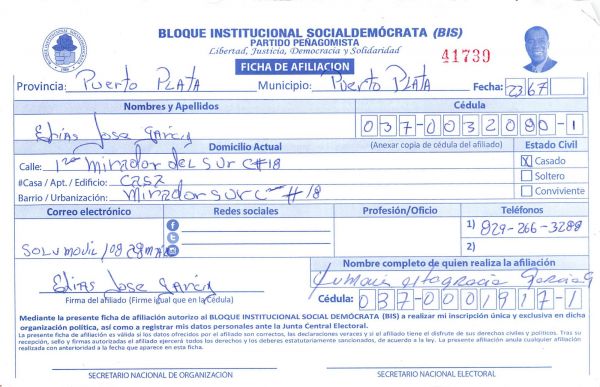 BLOQUE INSTITUCIONAL SOCIALDEMÓCRATA (BIS)
PARTIDO PEÑAGOMISTA
Libertad, Justicia, Democracia y Solidaridad
FICHA DE AFILIACION
41739
Provincia: Puerto PLATA Municipio: Puerto PLATA Fecha: 23 67
Nombres y Apellidos Cédula
Elias Jose García 037-0032090-1
Domicilio Actual (Anexar copia de cédula del afiliado) Estado Civil
Calle: 1ra Mirador del sur C#18 X Casado
#Casa / Apt. / Edificio: casa Soltero
Barrio / Urbanización: Mirador sur C #18 Conviviente
Correo electrónico Redes sociales Profesión/Oficio Teléfonos
1) 829-266-3288
2)
Nombre completo de quien realiza la afiliación
Elias Jose García altagracia García G
Firma del afiliado (Firme igual que en la Cédula) Cédula: 037-0001917-1
Mediante la presente ficha de afiliación autorizo al BLOQUE INSTITUCIONAL SOCIAL DEMÓCRATA (BIS) a realizar mi inscripción única y exclusiva en dicha
organización política, así como a registrar mis datos personales ante la Junta Central Electoral.
La presente ficha de afiliación es válida si los datos ofrecidos por el afiliado son correctos, las declaraciones veraces y si el afiliado tiene el disfrute de sus derechos civiles y políticos. Tras su
recepción, sello y firmas autorizadas el afiliado ejercerá todos los derechos y los deberes estatutariamente sancionados, de acuerdo a la ley. La presente afiliación anula cualquier afiliación
realizada con anterioridad a la fecha que aparece en esta ficha.
SECRETARIO NACIONAL DE ORGANIZACIÓN SECRETARIO NACIONAL ELECTORAL